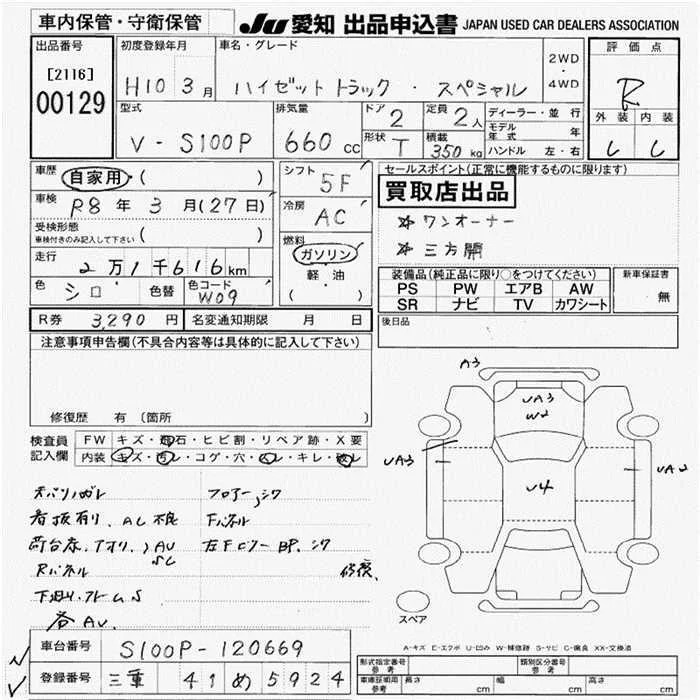 車内保管・守衛保管
JU 愛知 出品申込書 JAPAN USED CAR DEALERS ASSOCIATION
出品番号
[2116]
00129
初度登録年月
H10 3月
車名・グレード
ハイゼットトラック・スペシャル
2WD
・
4WD
評価点
R
外装 内装
型式
V-S100P
排気量
660cc
ドア 2
形状 T
定員 2人
積載 350kg
ディーラー・並行
モデル年式 年
ハンドル 左・右
車歴
自家用・( )
車検 R8年 3月(27日)
受検形態
車検付きのみ記入して下さい ( )
走行
2万1千616km
色 シロ 色替
色コード
W09
シフト
5F
冷房
AC
燃料
ガソリン
・
軽・油
( ・ )
セールスポイント(正常に機能するものに限ります)
買取店出品
☆ワンオーナー
☆三方開
装備品(純正品に限り○をつけてください)
PS PW エアB AW
SR ナビ TV カワシート
新車保証書
無
R券 3,290円
名変通知期限 月 日
後日品
注意事項申告欄(不具合内容等は具体的に記入して下さい)
修復歴 有(箇所 )
検査員
記入欄
FW キズ・飛石・ヒビ割・リペア跡・X要
内装 キズ・汚レ・コゲ・穴・凹・キレ・破レ
看板有り、AC不良
荷台床、アオリ、AV
Rパネル
下廻り、フレームS
各AV.
フロアーシワ
Fパネル
左Fピラー BP、シワ
修復
A3
UA3
W2
UA3
U4
UA2
スペア
A-キズ E-エクボ U-凹み W-補修跡 S-サビ C-腐食 XX-交換済
車台番号 S100P-120669
登録番号 三重 41 め 5924
形式指定番号
参考
類別区分番号
参考
車庫証明用
参考
長さ cm 幅 cm 高さ cm